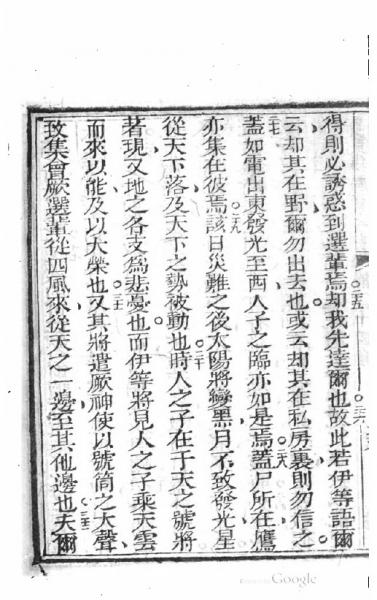 得則必誘惑到選輩焉却我先達爾也故此若伊等語爾
云却其在野爾勿出去也或云却其在私房裏則勿信之
蓋如電出東發光至西人子之臨亦如是焉蓋尸所在鷹
亦集在彼焉該日災難之後太陽將變黑月不致發光星
從天下落及天下之勢被動也時人之子在于天之號將
著現又地之各支為悲憂也而伊等將見人之子乘天雲
而來以能及以大榮也又其將遣厥神使以號筒之大聲
玫集會厥選輩從四風來從天之一邊至其他邊也夫爾
Google